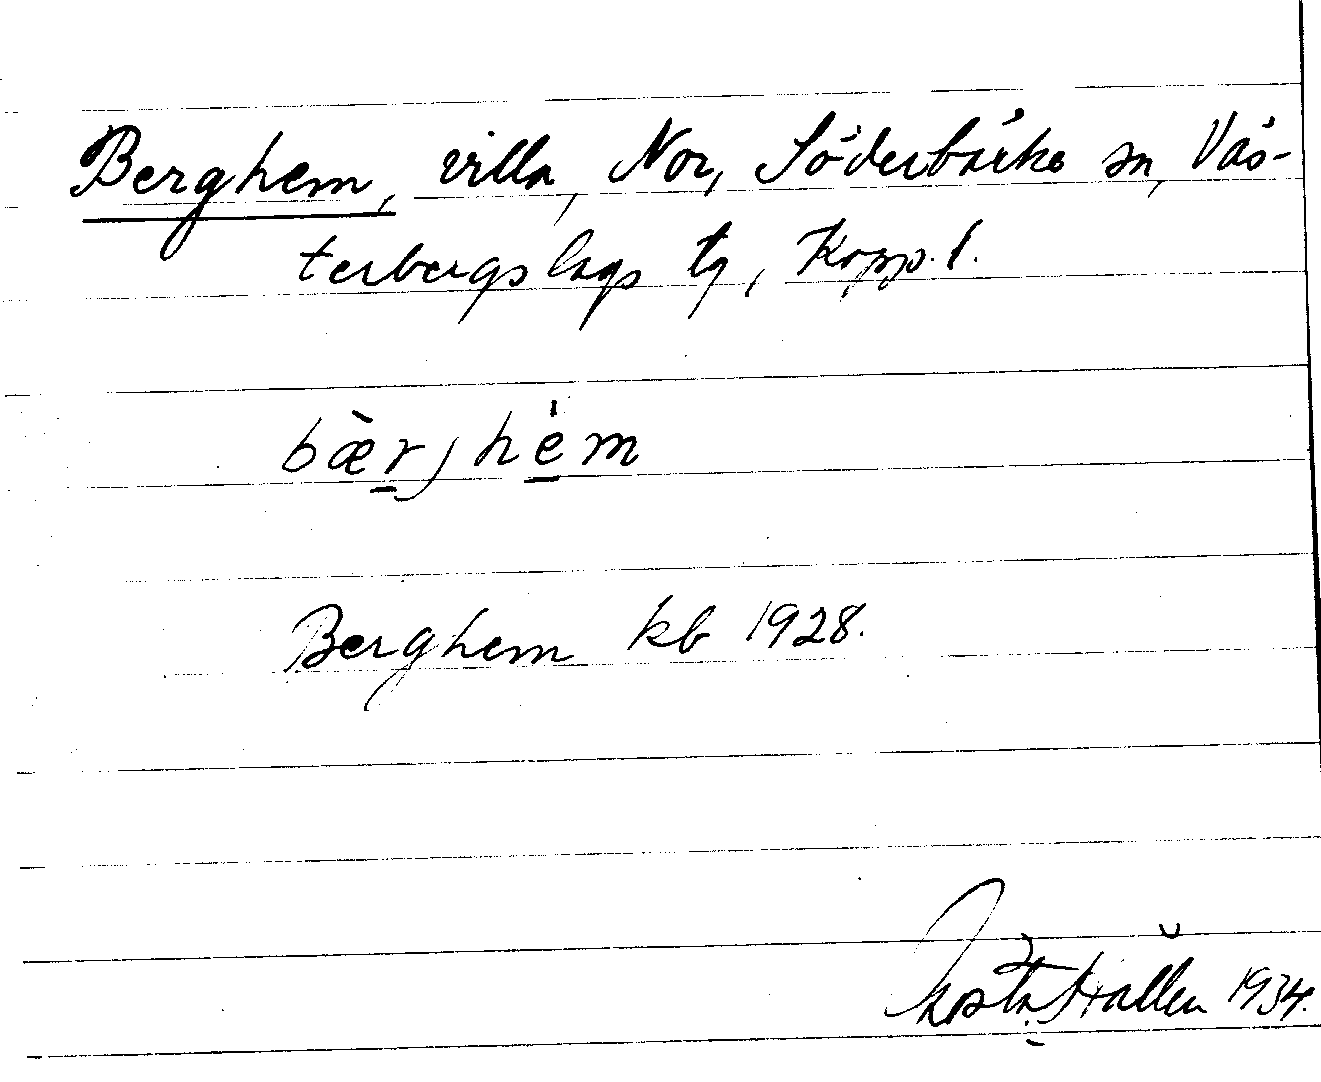 Berghem, villa, Nor, Söderbärke sn, Väs-
terbergslags tg, Kopp. l.
bæ̀rjhém
Berghem kb 1928.
Gösta Hallén 1934.